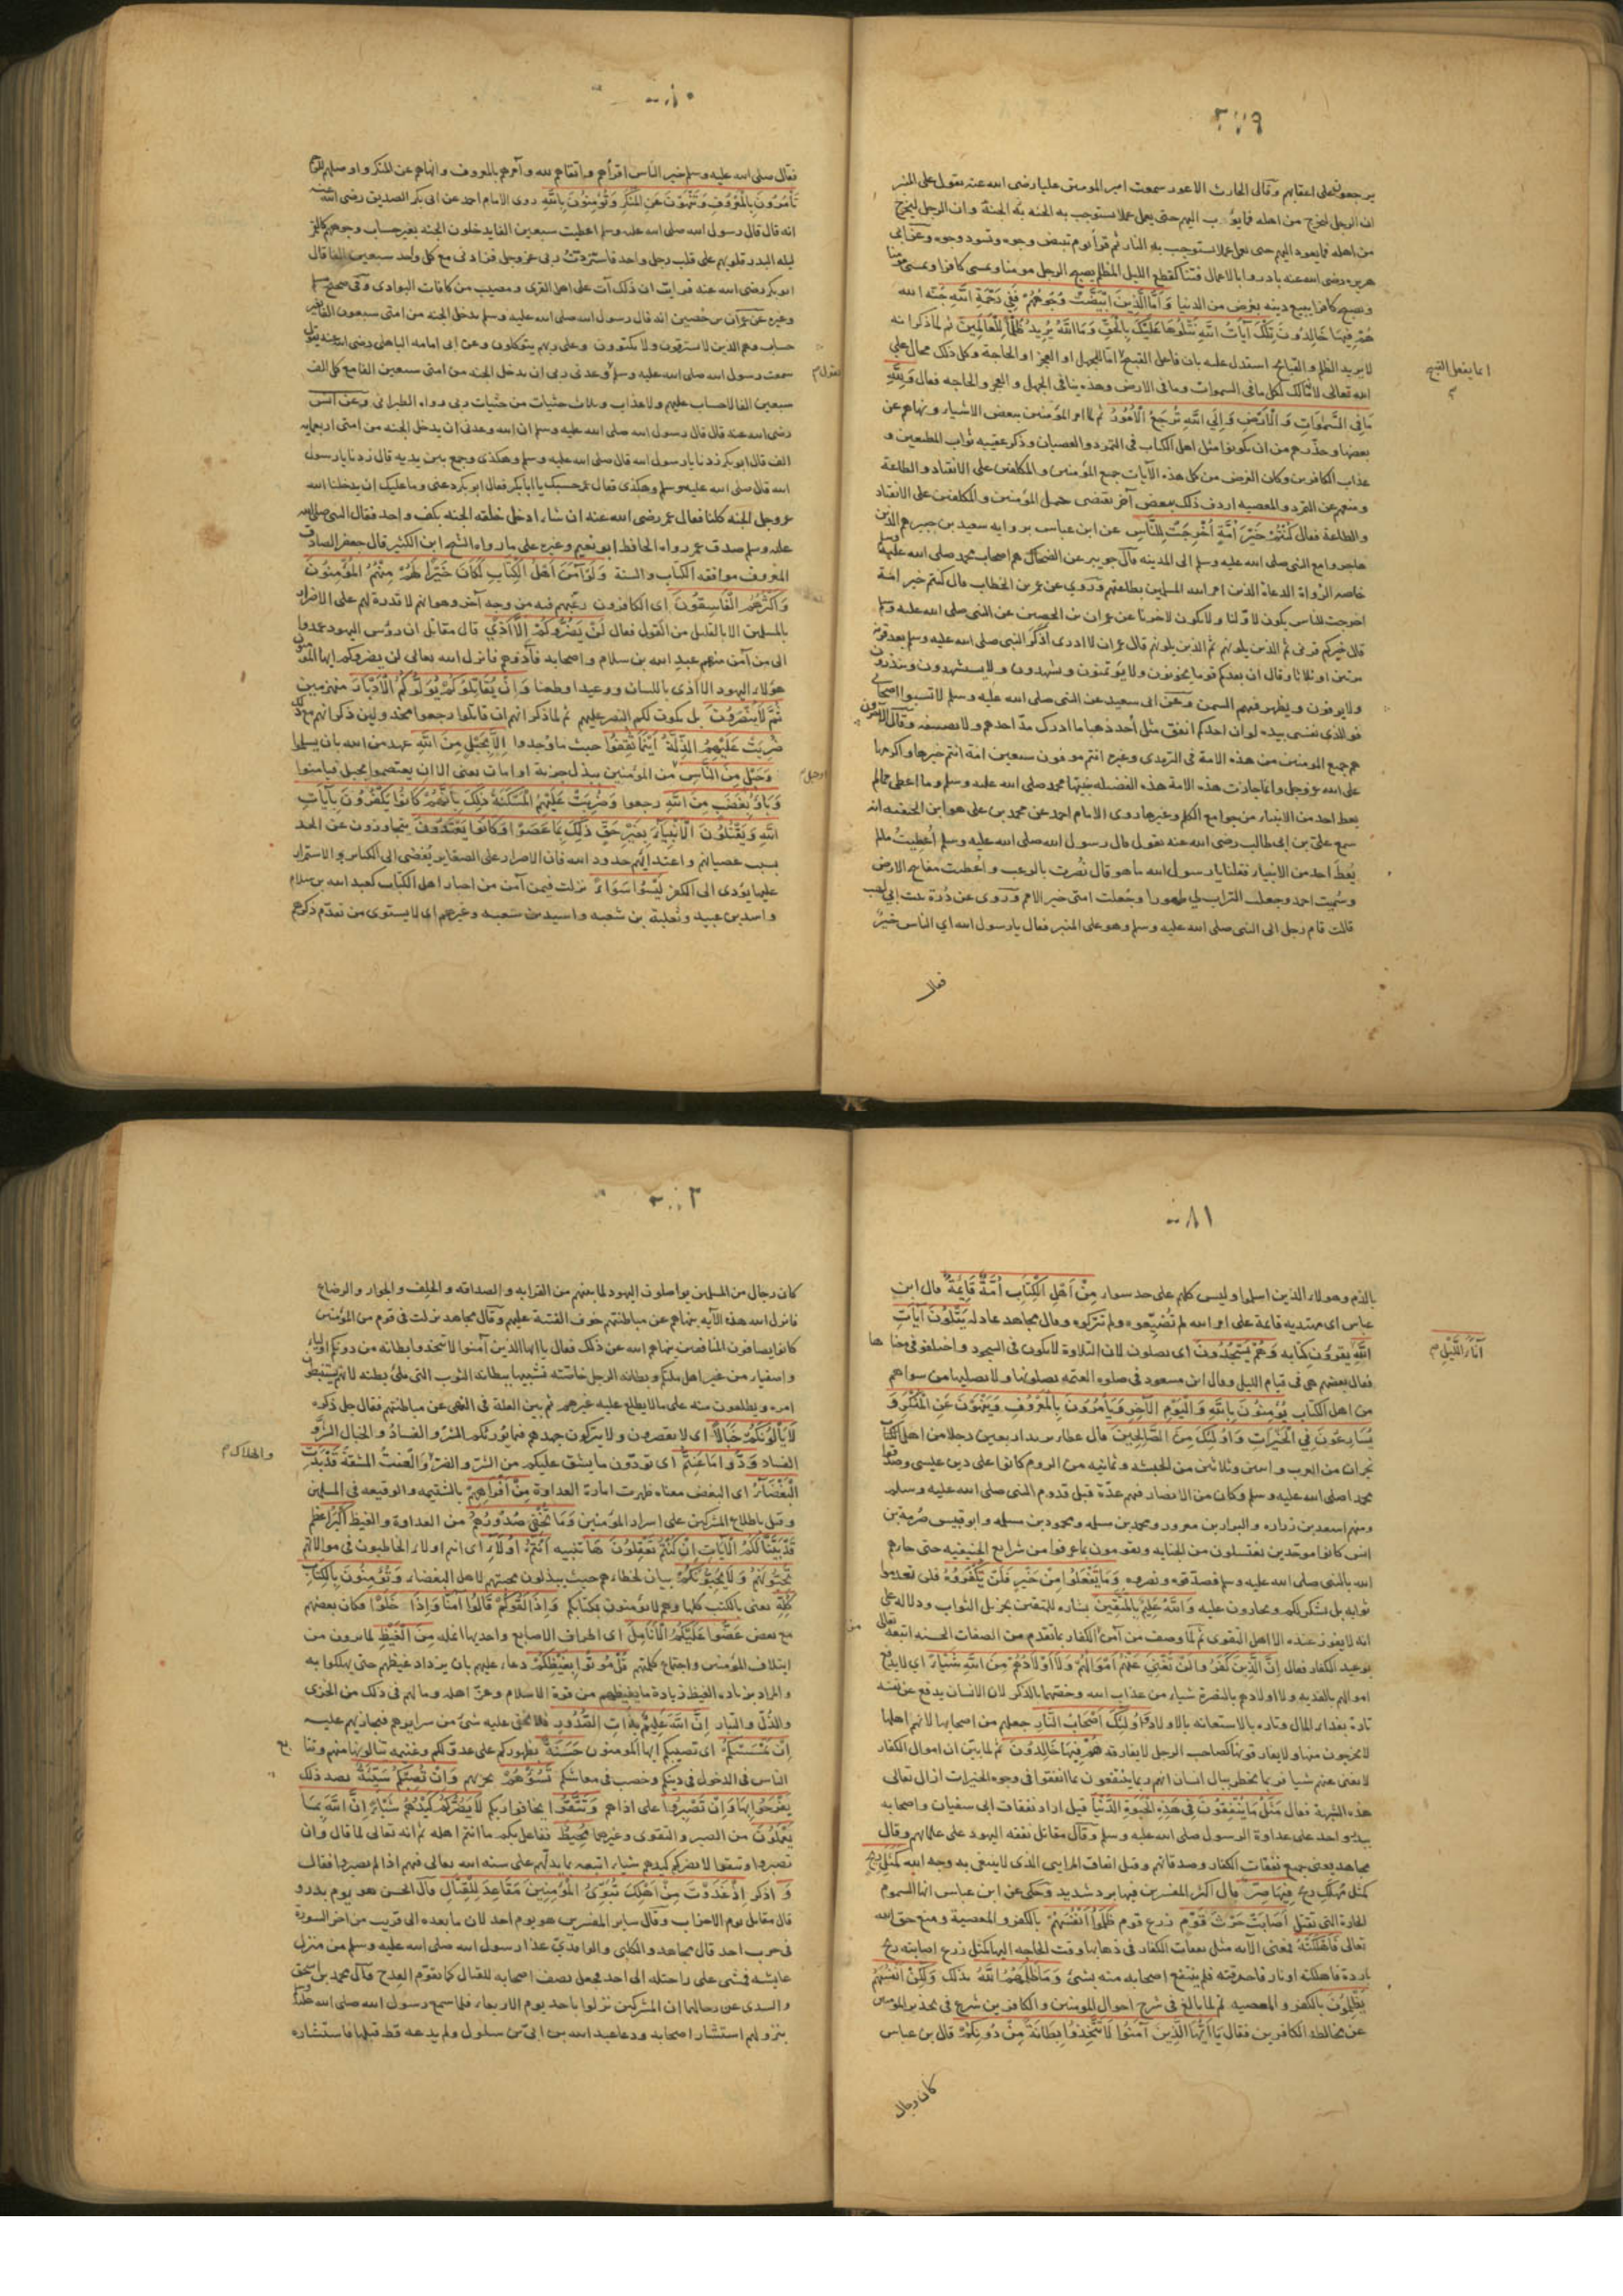 ٢٧٩
يرجعون على اعقابهم وقال الحارث الاعور سمعت امير المومنين عليا رضى الله عنه يقول على المنبر
ان الرجل ليخرج من اهله فما يؤب اليهم حتى يعمل عملا يستوجب به الجنه وان الرجل ليخرج
من اهله فما يعود اليهم حتى يعمل عملا يستوجب به النار ثم قرأ يوم تبيض وجوه وتسود وجوه وعن ابى
هريره رضى الله عنه بادروا بالاعمال فتنا كقطع الليل المظلم يصبح الرجل مومنا ويمسى كافرا ويمسى مومنا
ويصبح كافرا يبيع دينه بعرض من الدنيا وَأَمَّا الَّذِينَ ابْيَضَّتْ وُجُوهُهُمْ فَفِي رَحْمَةِ اللَّهِ جنة الله
هُمْ فِيهَا خَالِدُونَ تِلْكَ آيَاتُ اللَّهِ نَتْلُوهَا عَلَيْكَ بِالْحَقِّ وَمَا اللَّهُ يُرِيدُ ظُلْمًا لِلْعَالَمِينَ ثم لما ذكر انه
لا يريد الظلم والقبايح استدل عليه بان فاعل القبيح اما للجهل او العجز او الحاجة وكل ذلك محال على
انما يفعل القبيح
الله تعالى لانه مالك لكل مافى السموات ومافى الارض وهذه ينافى الجهل والعجز والحاجه فقال وَلِلَّهِ
مَا فِي السَّمَوَاتِ وَالْأَرْضِ وَإِلَى اللَّهِ تُرْجَعُ الْأُمُورُ ثم لما امر المؤمنين ببعض الاشياء ونهاهم عن
بعضها وحذرهم من ان يكونوا مثل اهل الكتاب فى التمرد والعصيان وذكر عقيبه ثواب المطيعين و
عذاب الكافرين وكان الغرض من كل هذه الآيات جمع المؤمنين والمكلفين على الانقياد والطاعة
ومنعهم عن التمرد والمعصيه اردف ذلك ببعض آخر يقتضى حمل المؤمنين والمكلفين على الانقياد
والطاعة فقال كُنْتُمْ خَيْرَ أُمَّةٍ أُخْرِجَتْ لِلنَّاسِ عن ابن عباس برواية سعيد بن جبير هم الذين
هاجروا مع النبى صلى الله عليه وسلم الى المدينه قال جويبر عن الضحاك هم اصحاب محمد صلى الله عليه وسلم
خاصه الرواة الدعاة الذين امر الله المسلمين بطاعتهم وروى عن عمر بن الخطاب قال كنتم خير امة
اخرجت للناس يكون لاولنا ولايكون لاخرنا عن عمران بن الحصين عن النبى صلى الله عليه وسلم
قال خيركم قرنى ثم الذين يلونهم ثم الذين يلونهم قال عمران لا ادرى اذكر النبى صلى الله عليه وسلم بعد قرنه
مرتين او ثلاثا وقال ان بعدكم قوما يخونون ولا يؤتمنون ويشهدون ولا يستشهدون وينذرون
ولا يوفون ويظهر فيهم السمن وعن ابى سعيد عن النبى صلى الله عليه وسلم لا تسبوا اصحابى
فوالذى نفسى بيده لو ان احدكم انفق مثل احد ذهبا ما ادرك مد احدهم ولا نصيفه وقال الآخرون
هم جميع المومنين من هذه الامة فى الترمذى وغيره انتم موفون سبعين امة انتم خيرها واكرمها
على الله عز وجل وانما جازت هذه الامة هذه الفضيله بنبيها محمد صلى الله عليه وسلم وما اعطى مالم
يعط احد من الانبياء من جوامع الكلم وغيرها روى الامام احمد عن محمد بن على هو ابن الحنفيه انه
سمع على بن ابى طالب رضى الله عنه يقول قال رسول الله صلى الله عليه وسلم أُعطيت مالم
يُعط احد من الانبياء فقلنا يا رسول الله ما هو قال نُصرت بالرعب واُعطيت مفاتيح الارض
وسُميت احمد وجعلت التراب لى طهورا وجُعلت امتى خير الامم وروى عن دُرة بنت ابى لهب
قالت قام رجل الى النبى صلى الله عليه وسلم وهو على المنبر فقال يا رسول الله اي الناس خير
فقال
فقال صلى الله عليه وسلم خير الناس اقرأهم واتقاهم لله وآمرهم بالمعروف وانهاهم عن المنكر واوصلهم للرحم
تَأْمُرُونَ بِالْمَعْرُوفِ وَتَنْهَوْنَ عَنِ الْمُنْكَرِ وَتُؤْمِنُونَ بِاللَّهِ روى الامام احمد عن ابى بكر الصديق رضى الله عنه
انه قال قال رسول الله صلى الله عليه وسلم اعطيت سبعين الفا يدخلون الجنه بغير حساب وجوههم كالقمر
ليله البدر قلوبهم على قلب رجل واحد فاستزدت ربى عز وجل فزادنى مع كل واحد سبعين الفا قال
ابو بكر رضى الله عنه فرايت ان ذلك آت على اهل القرى ومصيب من كافات البوادى وفى صحيح مسلم
وغيره عن عمران بن حُصين انه قال رسول الله صلى الله عليه وسلم يدخل الجنه من امتى سبعون الفا بغير
حساب وهم الذين لا يسترقون ولا يكتوون وعلى ربهم يتوكلون وعن ابى امامه الباهلى رضى الله عنه يقول
سمعت رسول الله صلى الله عليه وسلم وعدنى ربى ان يدخل الجنه من امتى سبعين الفا مع كل الف
يقول
سبعين الفا لاحساب عليهم ولاعذاب وثلاث حثيات من حثيات ربى رواه الطبرانى وعن انس
رضى الله عنه قال قال رسول الله صلى الله عليه وسلم ان الله وعدنى ان يدخل الجنه من امتى اربعمايه
الف قال ابو بكر زدنا يا رسول الله قال صلى الله عليه وسلم وهكذى وجمع بين يديه قال زدنا يا رسول
الله قال صلى الله عليه وسلم وهكذى فقال عمر حسبك يا ابا بكر فقال ابو بكر دعنى وما عليك ان يدخلنا الله
عز وجل الجنه كلنا فقال عمر رضى الله عنه ان شاء ادخل خلقه الجنه بكف واحد فقال النبى صلى الله
عليه وسلم صدق عمر رواه الحافظ ابو نعيم وغيره على ما رواه الشيخ ابن الكثير قال جعفر الصادق
المعروف موافقه الكتاب والسنة وَلَوْ آمَنَ أَهْلُ الْكِتَابِ لَكَانَ خَيْرًا لَهُمْ مِنْهُمُ الْمُؤْمِنُونَ
وَأَكْثَرُهُمُ الْفَاسِقُونَ اى الكافرون رغبهم فيه من وجه آخر وهو انهم لا قدرة لهم على الاضرار
بالمسلمين الا بالقليل من القول فقال لَنْ يَضُرُّوكُمْ إِلَّا أَذًى قال مقاتل ان رؤس اليهود عمدوا
الى من آمن منهم عبد الله بن سلام واصحابه فآذوهم فانزل الله تعالى لن يضروكم ايها المؤمنون
هؤلاء اليهود الا اذى باللسان ووعيدا وطعنا وَإِنْ يُقَاتِلُوكُمْ يُوَلُّوكُمُ الْأَدْبَارَ منهزمين
ثُمَّ لَا يُنْصَرُونَ بل يكون لكم النصر عليهم ثم لما ذكر انهم ان قاتلوا رجعوا مخذولين ذكر انهم مع ذلك
ضُرِبَتْ عَلَيْهِمُ الذِّلَّةُ أَيْنَمَا ثُقِفُوا حيث ما وجدوا إِلَّا بِحَبْلٍ مِنَ اللَّهِ عهد من الله بان يسلموا
وَحَبْلٍ مِنَ النَّاسِ من المؤمنين ببذل جزية او امان يعنى الا ان يعتصموا بحبل فيامنوا
وَبَاؤُ بِغَضَبٍ مِنَ اللَّهِ رجعوا وَضُرِبَتْ عَلَيْهِمُ الْمَسْكَنَةُ ذَلِكَ بِأَنَّهُمْ كَانُوا يَكْفُرُونَ بِآيَاتِ
اللَّهِ وَيَقْتُلُونَ الْأَنْبِيَاءَ بِغَيْرِ حَقٍّ ذَلِكَ بِمَا عَصَوْا وَكَانُوا يَعْتَدُونَ يتجاوزون عن الحد
بسبب عصيانهم واعتدائهم حدود الله فان الاصرار على الصغاير يُفضى الى الكباير والاستمرار
عليها يؤدى الى الكفر لَيْسُوا سَوَاءً نزلت فيمن آمن من احبار اهل الكتاب كعبد الله بن سلام
واسد بن عبيد وثعلبة بن شعبه واسيد بن شعبه وغيرهم اى لا يستوى من تقدم ذكرهم
٢٨١
بالذم وهولاء الذين اسلموا وليس كلهم على حد سواء مِنْ أَهْلِ الْكِتَابِ أُمَّةٌ قَائِمَةٌ قال ابن
عباس اى مهتديه قايمة على امر الله لم تُضيّعوه ولم تتركوه وقال مجاهد عادله يَتْلُونَ آيَاتِ
اللَّهِ يقرؤن كتابه وَهُمْ يَسْجُدُونَ اى يصلون لان التلاوة لا يكون فى السجود واختلفو فى معناها
آنَاءَ اللَّيْلِ
فقال بعضهم هى فى قيام الليل وقال ابن مسعود فى صلوه العتمه يصلونها ولا يصليها من سواهم
من اهل الكتاب يُؤْمِنُونَ بِاللَّهِ وَالْيَوْمِ الْآخِرِ وَيَأْمُرُونَ بِالْمَعْرُوفِ وَيَنْهَوْنَ عَنِ الْمُنْكَرِ وَ
يُسَارِعُونَ فِي الْخَيْرَاتِ وَأُولَئِكَ مِنَ الصَّالِحِينَ قال عطاء يريد اربعين رجلا من اهل الكتاب
نجران من العرب واثنين وثلاثين من الحبشه وثمانيه من الروم كانوا على دين عيسى وصدقوا
محمدا صلى الله عليه وسلم وكان من الانصار فيهم عدّة قبل قدوم النبى صلى الله عليه وسلم
ومنهم اسعد بن زراره والبراء بن معرور ومحمد بن مسلمه ومحمود بن مسلمه وابو قيس صُرمة بن
انس كانوا موحّدين يغتسلون من الجنابه ويقومون بما عرفوا من شرايع الحنيفيه حتى جاءهم
الله بالنبى صلى الله عليه وسلم فصدقوه ونصروه وَمَا يَفْعَلُوا مِنْ خَيْرٍ فَلَنْ يُكْفَرُوهُ فلن تعدموا
ثوابه بل نشكر لكم وتجازون عليه وَاللَّهُ عَلِيمٌ بِالْمُتَّقِينَ بشارة للمتقين بجزيل الثواب ودلاله على
انه لا يفوز عنده الا اهل التقوى ثم لما وصف من آمن الكفار بما تقدم من الصفات الحسنه اتبعه
بوعيد الكفار فقال إِنَّ الَّذِينَ كَفَرُوا لَنْ تُغْنِيَ عَنْهُمْ أَمْوَالُهُمْ وَلَا أَوْلَادُهُمْ مِنَ اللَّهِ شَيْئًا اى لا يدفع
اموالهم بالفديه ولا اولادهم بالنصرة شيئا من عذاب الله وخصّهما بالذكر لان الانسان يدفع عن نفسه
تارة بفداء المال وتارة بالاستعانه بالاولاد وَأُولَئِكَ أَصْحَابُ النَّارِ جعلهم من اصحابها لانهم اهلها
لا يخرجون منها ولا يفارقونها كصاحب الرجل لا يفارقه هُمْ فِيهَا خَالِدُونَ ثم لما بيّن ان اموال الكفار
لا يغنى عنهم شيئا فربما يخطر ببال انسان انهم ربما ينتفعون بما انفقوا فى وجوه الخيرات ازال تعالى
هذه الشبهة فقال مَثَلُ مَا يُنْفِقُونَ فِي هَذِهِ الْحَيَوةِ الدُّنْيَا قيل اراد نفقات ابى سفيان واصحابه
ببدر واحد على عداوة الرسول صلى الله عليه وسلم وقال مقاتل نفقه اليهود على علمائهم وقال
مجاهد يعنى جميع نفقات الكفار وصدقاتهم وقيل انفاق المرايى الذى لا ينبغى به وجه الله كَمَثَلِ رِيحٍ
كمثل مهلك ريح فِيهَا صِرٌّ قال اكثر المفسرين فيها برد شديد وحكى عن ابن عباس انها السموم
الحارة التى تقتل أَصَابَتْ حَرْثَ قَوْمٍ زرع قوم ظَلَمُوا أَنْفُسَهُمْ بالكفر والمعصية ومنع حق الله
تعالى فَأَهْلَكَتْهُ فمعنى الآيه مثل نفقات الكفار فى ذهابها وقت الحاجه اليها كمثل زرع اصابته ريح
باردة فاهلكته او نار فاحرقته فلم ينتفع اصحابه منه بشئ وَمَا ظَلَمَهُمُ اللَّهُ بذلك وَلَكِنْ أَنْفُسَهُمْ
يَظْلِمُونَ بالكفر والمعصيه ثم لما بالغ فى شرح احوال المومنين والكافرين شرع فى تحذير المومنين
عن مخالطه الكافرين فقال يَا أَيُّهَا الَّذِينَ آمَنُوا لَا تَتَّخِذُوا بِطَانَةً مِنْ دُونِكُمْ قال بن عباس
كان رجال
كان رجال من المسلمين يواصلون اليهود لما بينهم من القرابه والصداقه والحلف والجوار والرضاع
فانزل الله هذه الآيه ينهاهم عن مباطنتهم خوف الفتنة عليهم وقال مجاهد نزلت فى قوم من المؤمنين
كانوا يصافون المنافقين ينهاهم الله عن ذلك فقال يا ايها الذين آمنوا لا تتخذوا بطانه من دونكم اولياء
واصفياء من غير اهل ملتكم وبطانه الرجل خاصّته تشبيها ببطانه الثوب التى تلى بطنه لانهم يستبطنون
امره ويطلعون منه على ما لا يطلع عليه غيرهم ثم بين العلة فى النهى عن مباطنتهم فقال جل ذكره
لَا يَأْلُونَكُمْ خَبَالًا اى لا يقصرون ولا يتركون جهدهم فيما يورثكم الشر والفساد والخبال الشر و
والهلاك
الفساد وَدُّوا مَا عَنِتُّمْ اى يودّون ما يشق عليكم من الشر والضر والعنت المشقة قَدْ بَدَتِ
الْبَغْضَاءُ اى البغض معناه ظهرت امارة العداوة مِنْ أَفْوَاهِهِمْ بالشتيمه والوقيعه فى المسلمين
وقيل باطلاع المشركين على اسرار المؤمنين وَمَا تُخْفِي صُدُورُهُمْ من العداوة والغيظ أَكْبَرُ اعظم
قَدْ بَيَّنَّا لَكُمُ الْآيَاتِ إِنْ كُنْتُمْ تَعْقِلُونَ هَا تنبيه أَنْتُمْ أُولَاءِ اى انتم اولاء الخاطبون فى موالاتهم
تُحِبُّونَهُمْ وَلَا يُحِبُّونَكُمْ بيان لخطاءهم حيث يبذلون محبتهم لاهل البغضاء وَتُؤْمِنُونَ بِالْكِتَابِ
كُلِّهِ يعنى بالكتب كلها وهم لا يؤمنون بكتابكم وَإِذَا لَقُوكُمْ قَالُوا آمَنَّا وَإِذَا خَلَوْا فكان بعضهم
مع بعض عَضُّوا عَلَيْكُمُ الْأَنَامِلَ اى اطراف الاصابع واحدها انملة مِنَ الْغَيْظِ لما يرون من
ايتلاف المؤمنين واجتماع كلمتهم قُلْ مُوتُوا بِغَيْظِكُمْ دعاء عليهم بان يزداد غيظهم حتى يهلكوا به
والمراد بزياده الغيظ زيادة ما يغيظهم من قوة الاسلام وعزّ اهله ومالهم فى ذلك من الخزى
والذلّ والتبار إِنَّ اللَّهَ عَلِيمٌ بِذَاتِ الصُّدُورِ فلا يخفى عليه شئ من سرايرهم فيجازيهم عليه
إِنْ تَمْسَسْكُمْ اى تصبكم ايها المومنون حَسَنَةٌ بظهوركم على عدوكم وغنيمه تنالونها منهم وتتابع
الناس فى الدخول فى دينكم وخصب فى معاشكم تَسُؤْهُمْ يحزنهم وَإِنْ تُصِبْكُمْ سَيِّئَةٌ بضد ذلك
يَفْرَحُوا بِهَا وَإِنْ تَصْبِرُوا على اذاهم وَتَتَّقُوا تخافوا ربكم لَا يَضُرُّكُمْ كَيْدُهُمْ شَيْئًا إِنَّ اللَّهَ بِمَا
يَعْمَلُونَ من الصبر والتقوى وغيرهما مُحِيطٌ فاعل بكم ما انتم اهله ثم انه تعالى لما قال وان
تصبروا وتتقوا لا يضركم كيدهم شيئا اتبعه بما يدلّهم على سنه الله تعالى فيهم اذا لم يصبروا فقال
وَ اذكر إِذْ غَدَوْتَ مِنْ أَهْلِكَ تُبَوِّئُ الْمُؤْمِنِينَ مَقَاعِدَ لِلْقِتَالِ قال الحسن هو يوم بدر و
قال مقاتل يوم الاحزاب وقال ساير المفسرين هو يوم احد لان ما بعده الى قريب من آخر السورة
فى حرب احد قال مجاهد والكلبى والواقديّ غدا رسول الله صلى الله عليه وسلم من منزل
عايشه فمشى على راحلته الى احد فجعل يصف اصحابه للقتال كما يقوّم القِدح قال محمد بن اسحق
والسدى عن رجالهما ان المشركين نزلوا باحد يوم الاربعاء فلما سمع رسول الله صلى الله عليه وسلم
بنزولهم استشار اصحابه ودعا عبد الله بن ابىّ بن سلول ولم يدعه قط قبلها فاستشاره